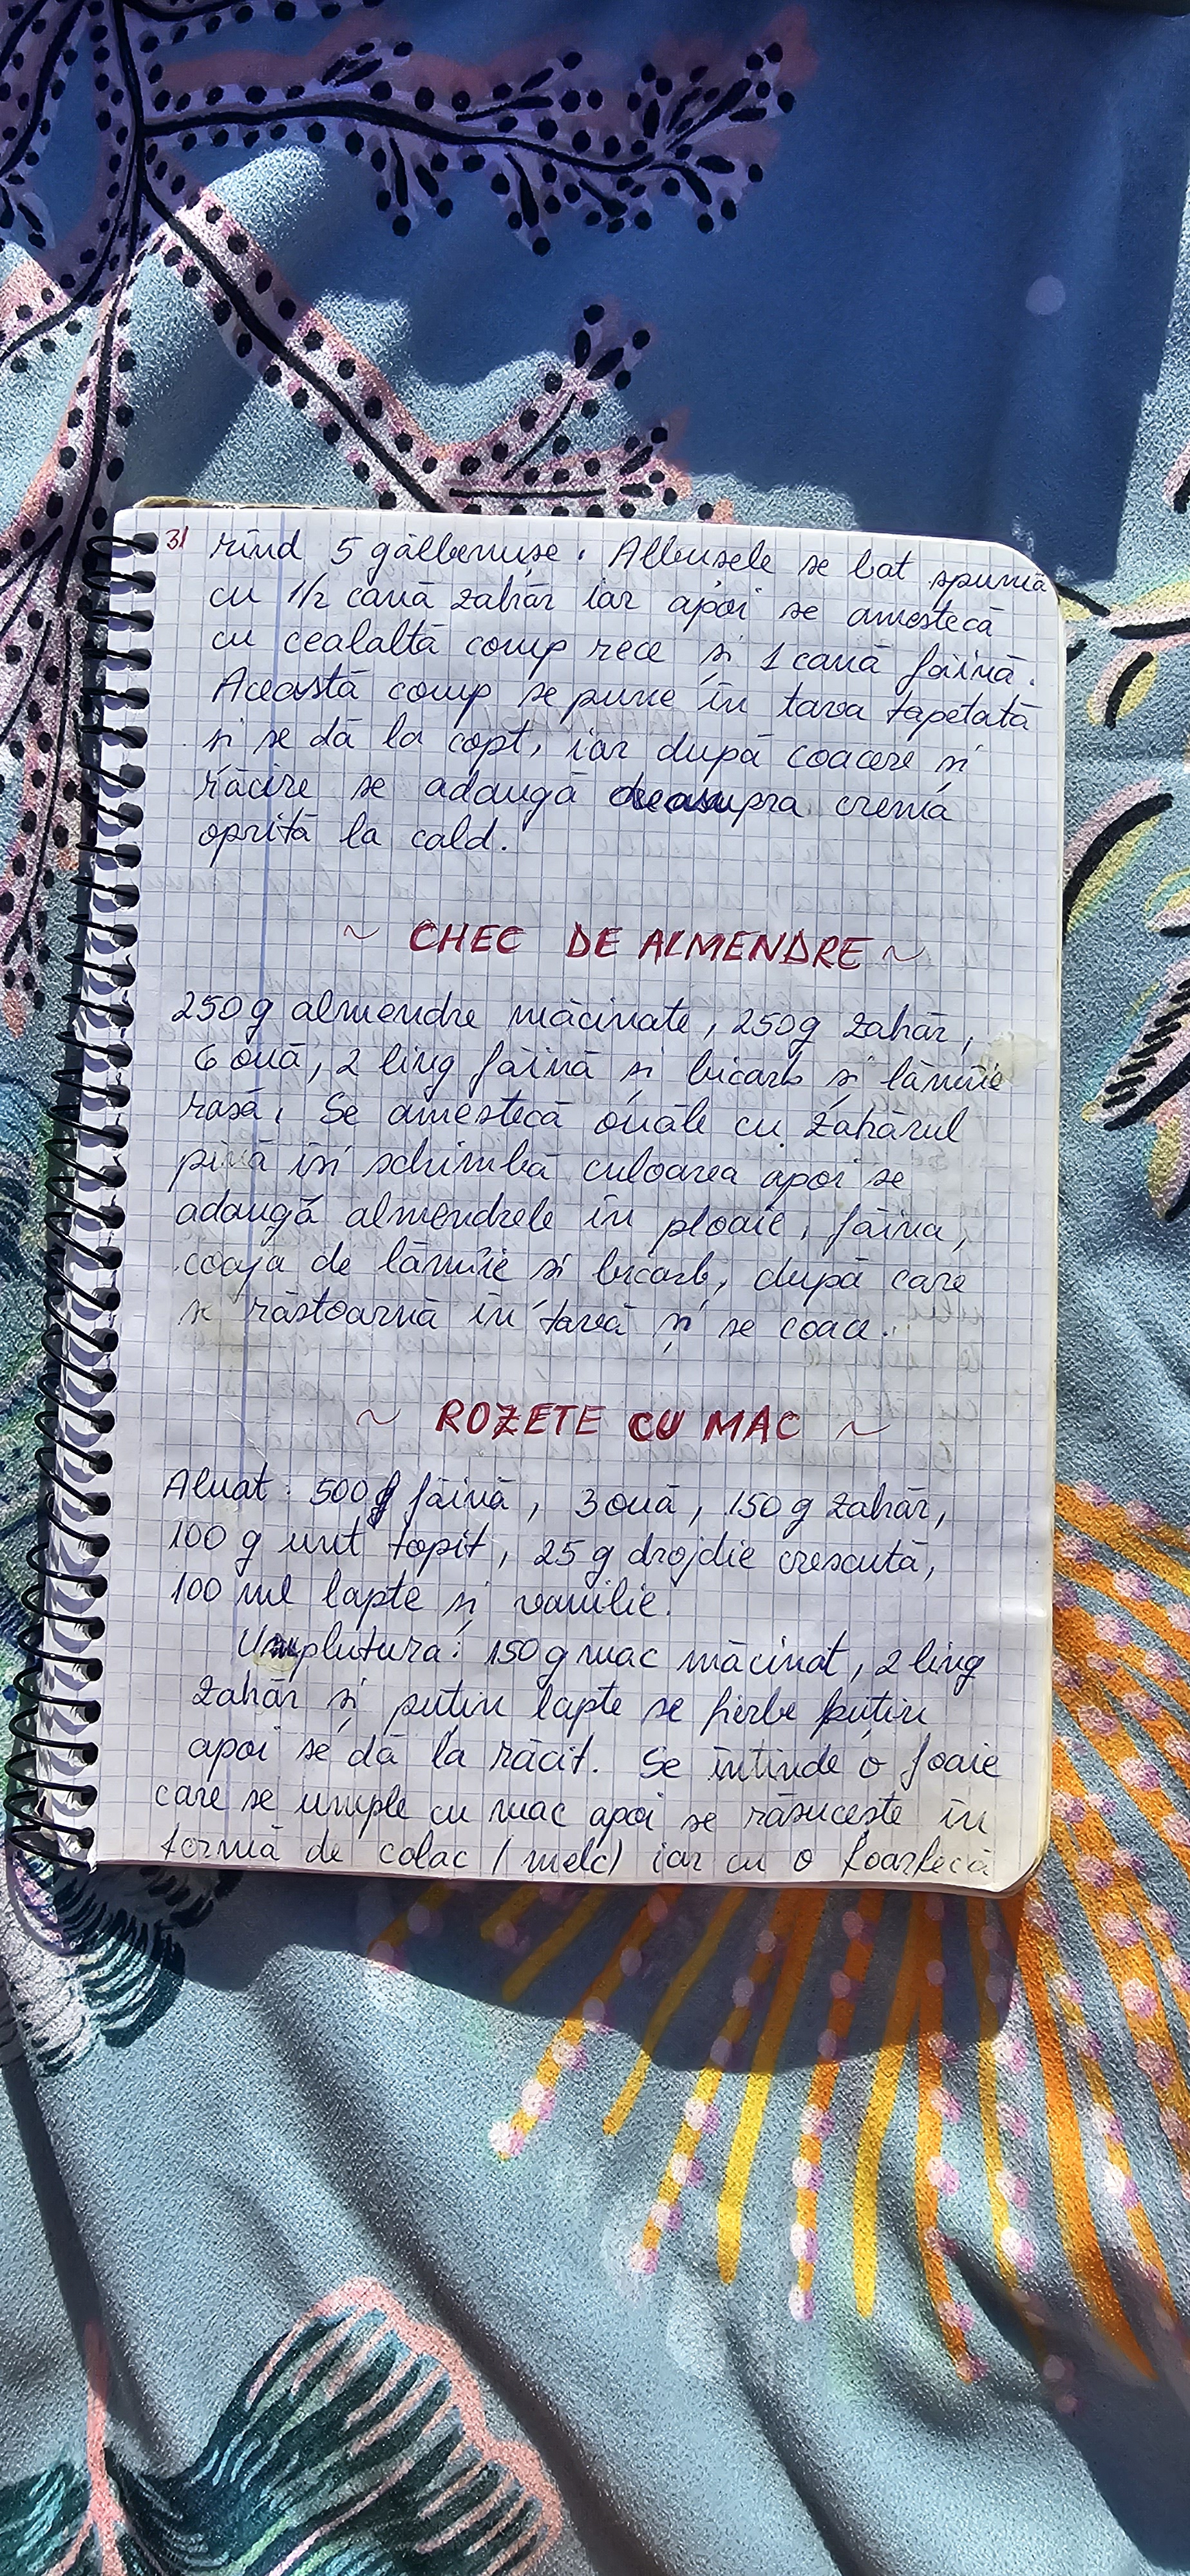 31 rînd 5 gălbenușe. Albușele se bat spumă
cu 1/2 cană zahăr iar apoi se amestecă
cu cealaltă comp rece și 1 cană făină.
Această comp se pune în tava tapetată
și se dă la copt, iar după coacere și
răcire se adaugă deasupra crema
oprită la cald.
~ CHEC DE ALMENDRE ~
250 g almendre măcinate, 250 g zahăr,
6 ouă, 2 ling făină și bicarb și lămîie
rasă. Se amestecă ouăle cu zahărul
pînă își schimbă culoarea apoi se
adaugă almendrele în ploaie, făina,
coaja de lămîie și bicarb, după care
se răstoarnă în tavă și se coace.
~ ROZETE CU MAC ~
Aluat: 500 g făină, 3 ouă, 150 g zahăr,
100 g unt topit, 25 g drojdie crescută,
100 ml lapte și vanilie.
Umplutura: 150 g mac măcinat, 2 ling
zahăr și puțin lapte se fierbe puțin
apoi se dă la răcit. Se întinde o foaie
care se umple cu mac apoi se răsucește în
formă de colac (melc) iar cu o foarfecă